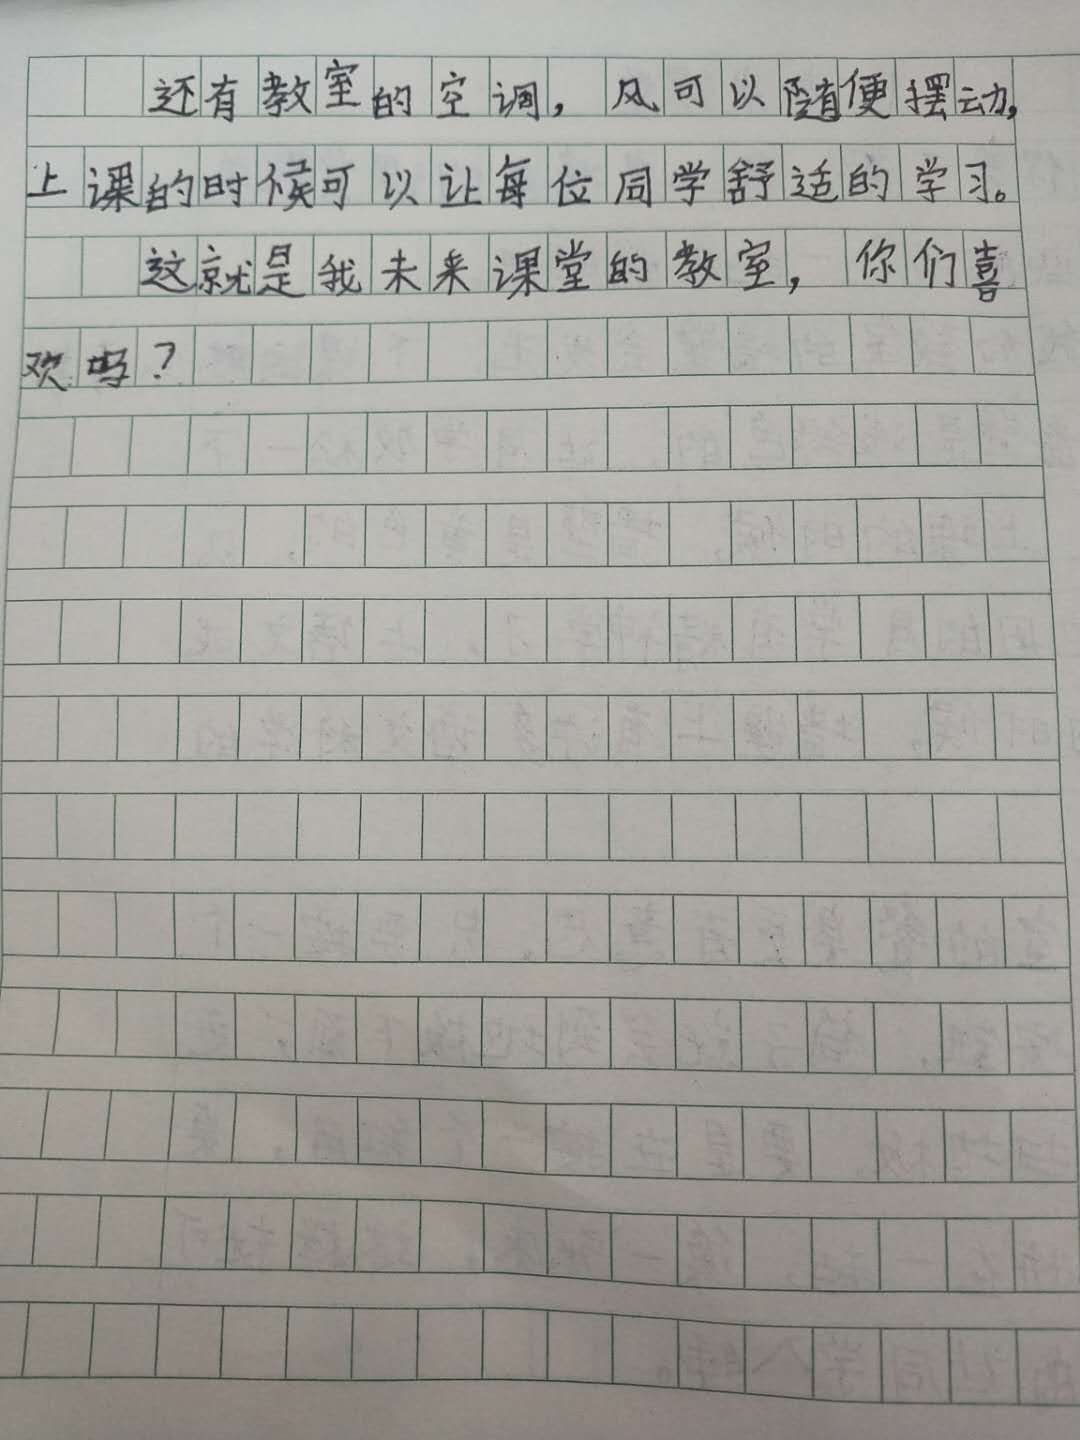 还有教室的空调，风可以随便摆动，
上课的时候可以让每位同学舒适的学习。
这就是我未来课堂的教室，你们喜
欢吗？